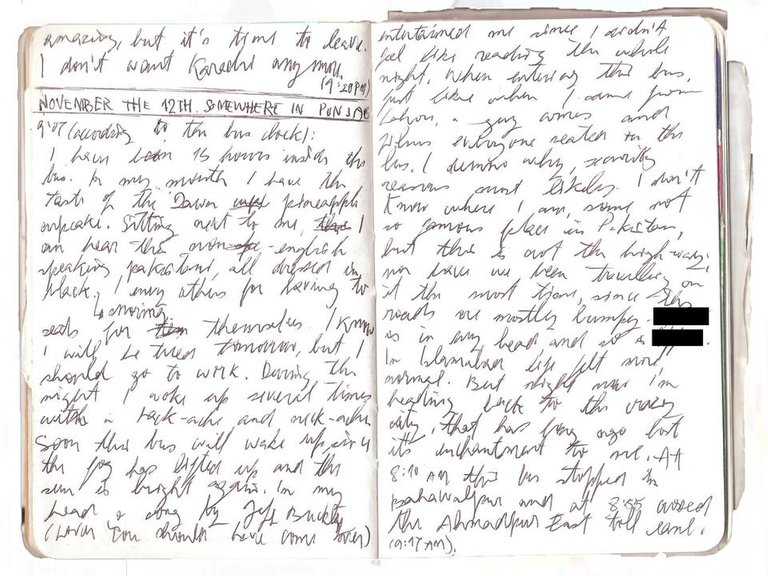 amazing, but it's time to leave.
I don't want Karachi anymore.
(9:20PM)
NOVEMBER THE 12TH, SOMEWHERE IN PUNJAB
9:07 (according to the bus clock):
I have been 15 hours inside this
bus. In my mouth I have the
taste of the Dawn pineapple
cupcake. Sitting next to me, this I
can hear this non-english
speaking pakistani, all dressed in
black. I envy others for having two
seats for snoring themselves. I know
I will be tired tomorrow, but I
should go to work. During the
night I woke up several times
with a back-ache and neck-ache.
Soon this bus will wake up, since
the fog has lifted up and the
sun is bright again. In my
head a song by Jeff Buckley
(Lover You should have come over)
entertained me since I didn't
feel like reading the whole
night. When entering this bus,
just like when I came from
Lahore, a guy comes and
films everyone seated in the
bus. I dunno why, security
reasons most likely. I don't
know where I am, some not
so famous place in Pakistan,
but this is not the high-way,
nor have we been travelling on
it the most time, since the
roads are mostly bumpy.
is in my head and so is
In Islamabad life felt more
normal. But right now I'm
heading back to the crazy
city, that has long ago lost
its enchantment to me. At
8:10 AM this bus stopped in
Bahawalpur and at 8:55 crossed
the Ahmadpur East toll
(9:17 AM).